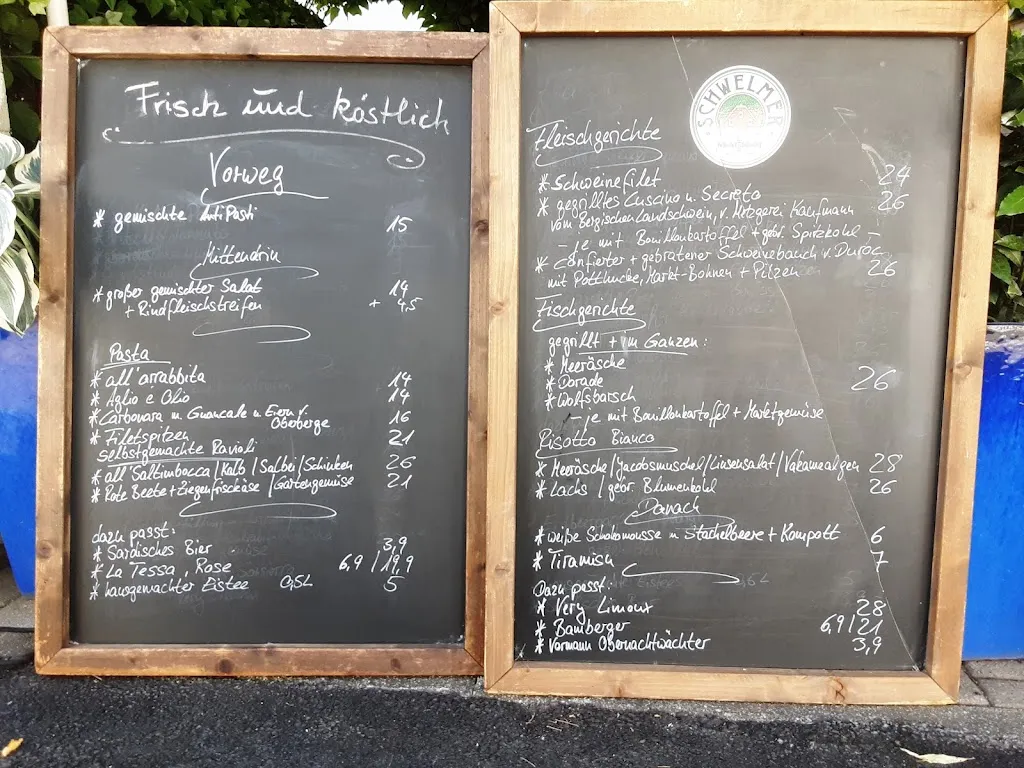 Frisch und köstlich
Vorweg
* gemischte AntiPasti 15
Mittendrin
* großer gemischter Salat 14
+ Rindfleischstreifen + 4,5
Pasta
* all'arrabbita 14
* Aglio e Olio 14
* Carbonara m. Guancale u. Eiern v. Oberberge 16
* Filetspitzen 21
selbstgemachte Ravioli
* all'Saltimbocca / Kalb / Salbei / Schinken 26
* Rote Beete + Ziegenfrischkäse / Gartengemüse 21
dazu passt:
* Sardisches Bier 3,9
* La Tessa, Rose 6,9 / 19,9
* hausgemachter Eistee 0,5L 5
SCHWELMER
Fleischgerichte
* Schweinefilet 24
* gegrilltes Cuscino u. Secreto 26
vom Bergischen Landschwein, v. Metzgerei Kaufmann
- je mit Bouillonkartoffel + gebr. Spitzkohl -
* confierter + gebratener Schweinebauch v. Duroc
mit Potthucke, Markt-Bohnen + Pilzen 26
Fischgerichte
gegrillt + im Ganzen:
* Meeräsche
* Dorade 26
* Wolfsbarsch
je mit Bouillonkartoffel + Marktgemüse
Risotto Bianco
* Meeräsche / Jacobsmuschel / Linsensalat / 28
* Lachs / gebr. Blumenkohl 26
Danach
* weiße Schokomousse m Stachelbeere + Kompott 6
* Tiramisu 7
Dazu passt:
* Very Limoux 28
* Bamberger 6,9 / 21
* Vormann Obernachtwächter 3,9